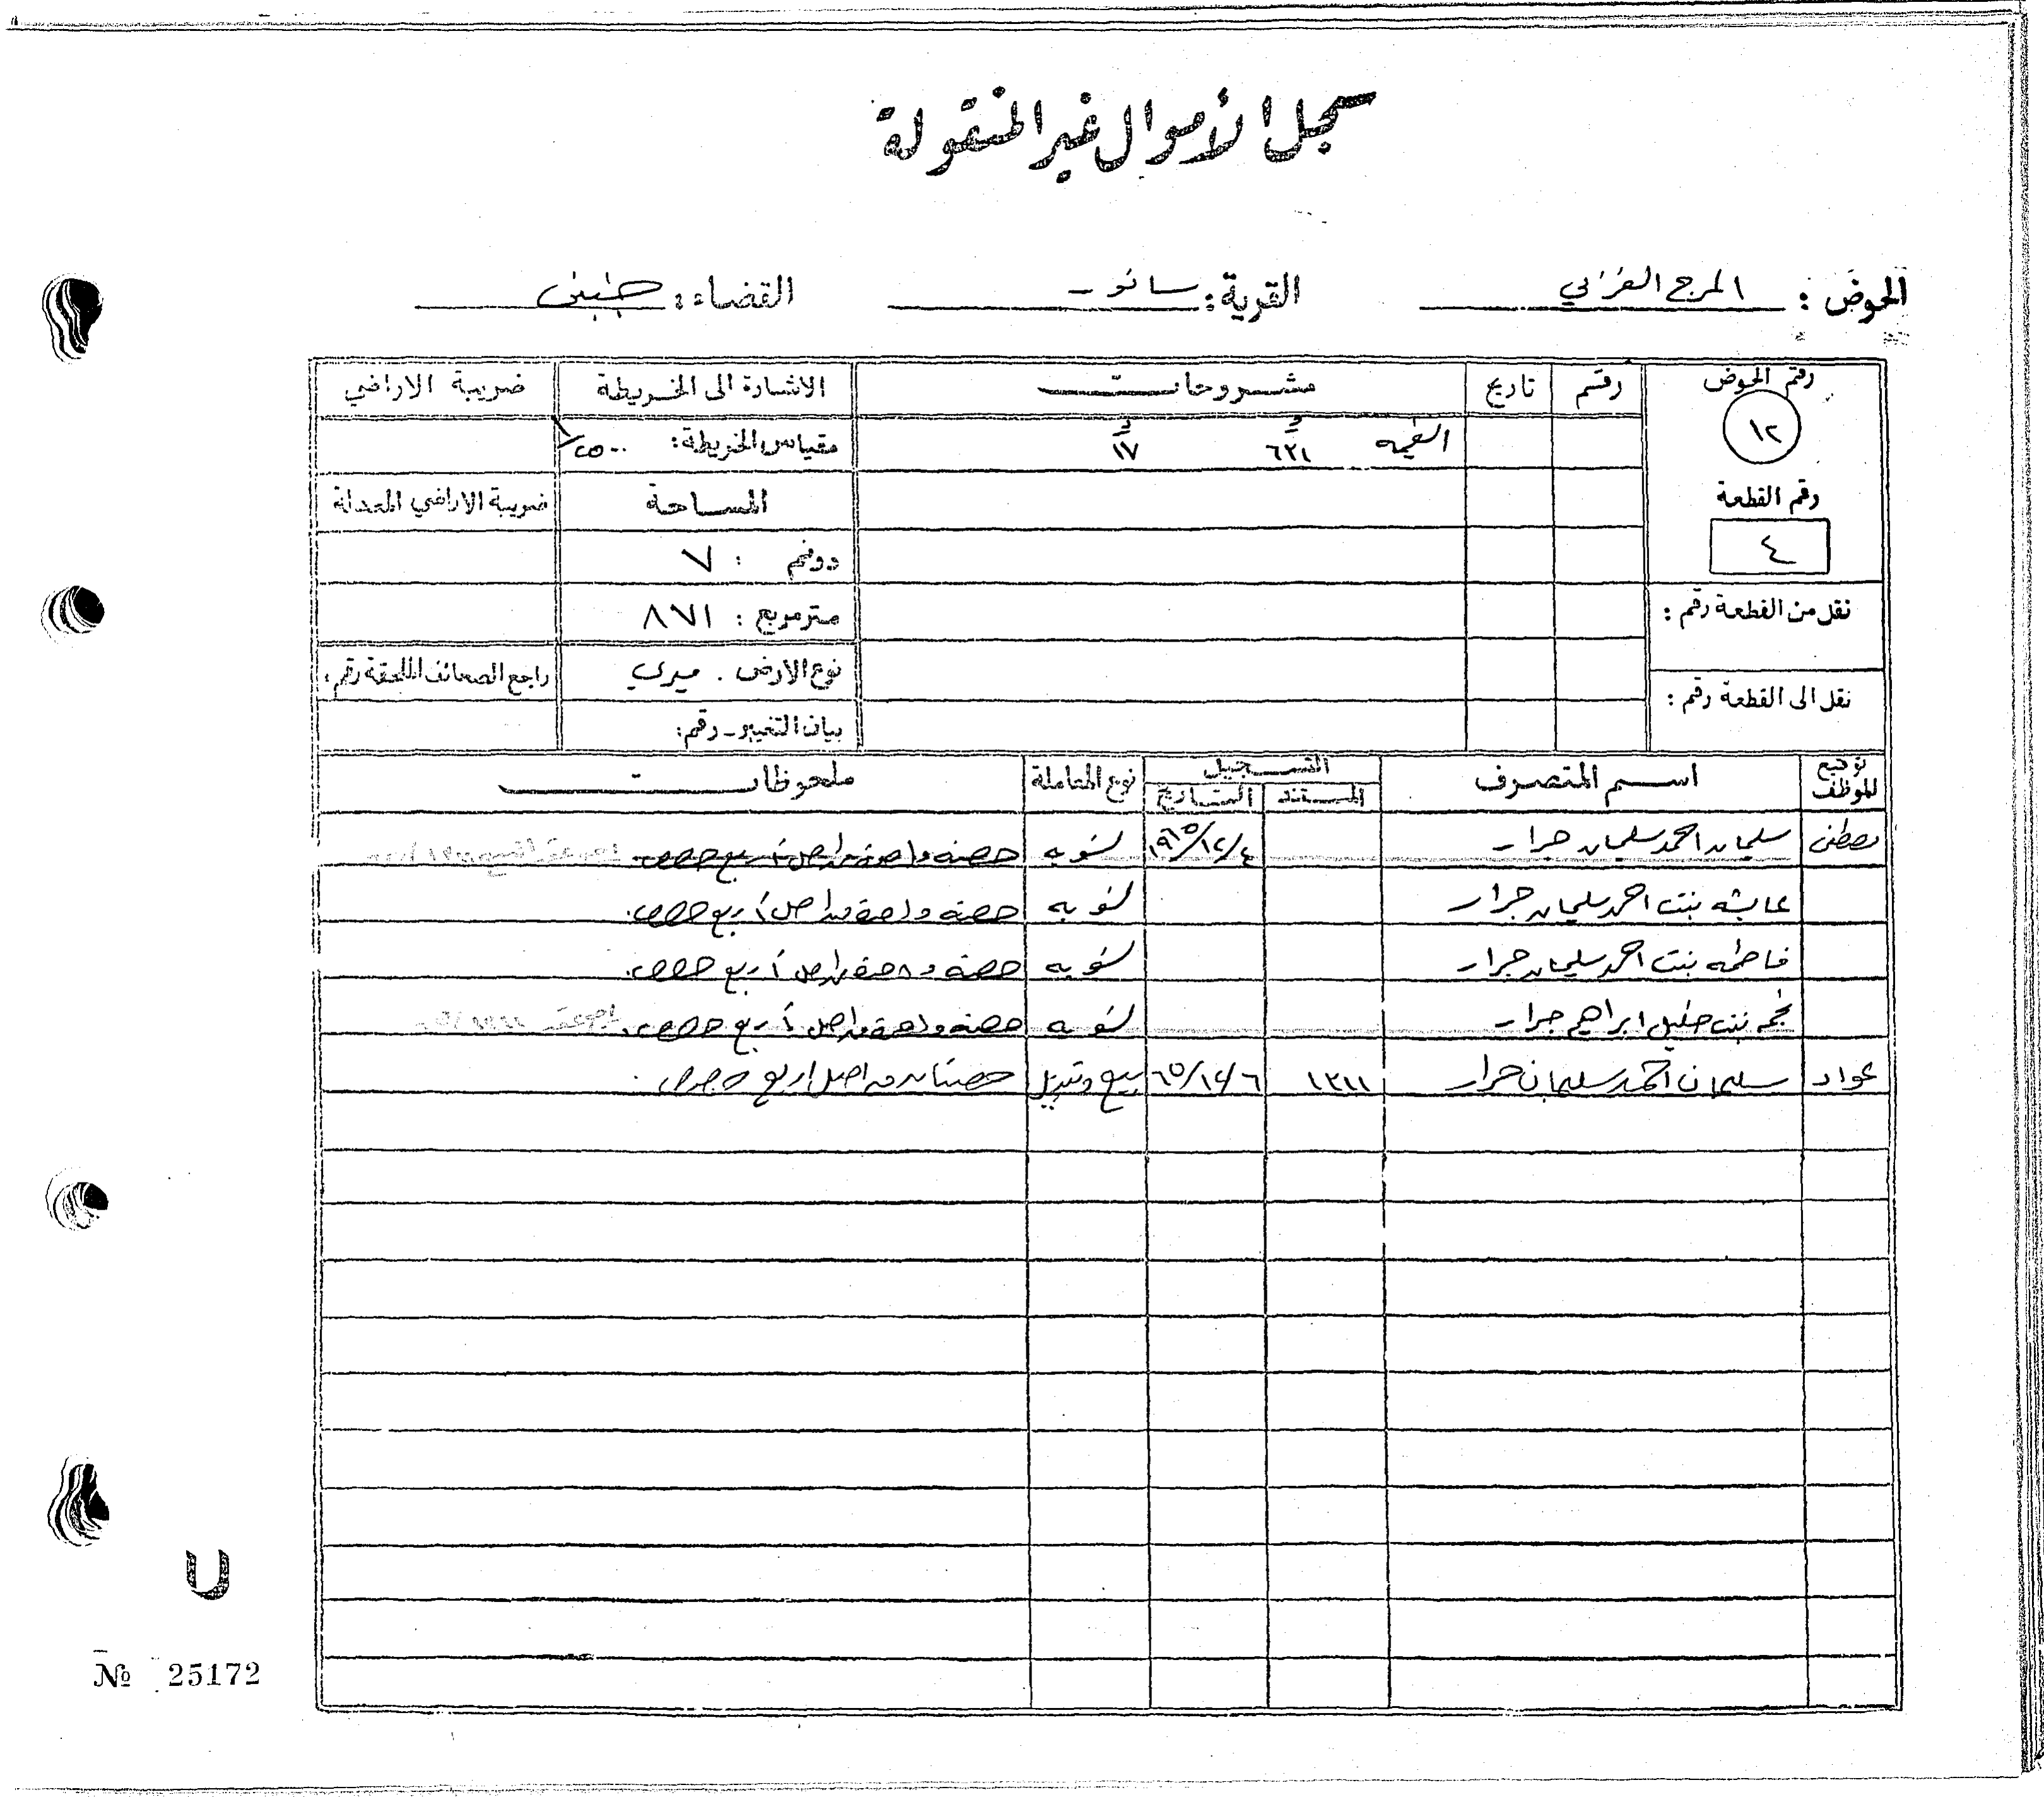 سجل الأموال غير المنقولة
الحوض : المرج الغربي القرية : سانور القضاء : جنين
رقم الحوض رقم تاريخ مشروحات الاشارة الى الخريطة ضريبة الاراضي
١٢ القيمة ٦٣١ ١٧ مقياس الخريطة: ١/٢٥٠٠
رقم القطعة المساحة ضريبة الاراضي المعدلة
٤ دونم : ٧
نقل من القطعة رقم : متر مربع : ٨٧١
نوع الارض . ميري راجع الصحائف الملحقة رقم :
نقل الى القطعة رقم : بيان التغيير - رقم:
توقيع الموظف اسم المتصرف التسجيل نوع المعاملة ملحوظات
المستند التاريخ
مصطفى سليمان احمد سليمان جرار ١٩٦٥/١٢/٤ تسويه حصه واحده من اصل أربع حصص
عايشه بنت احمد سليمان جرار تسويه حصه واحدة من اصل أربع حصص.
فاطمه بنت احمد سليمان جرار تسويه حصه واحدة من اصل أربع حصص.
نجمه بنت خليل ابراهيم جرار تسويه حصه واحدة من اصل أربع حصص.
عواد سليمان احمد سليمان جرار ١٣١١ ٦٥/١٢/٦ بيع حصتان من اصل اربع حصص.
№ 25172